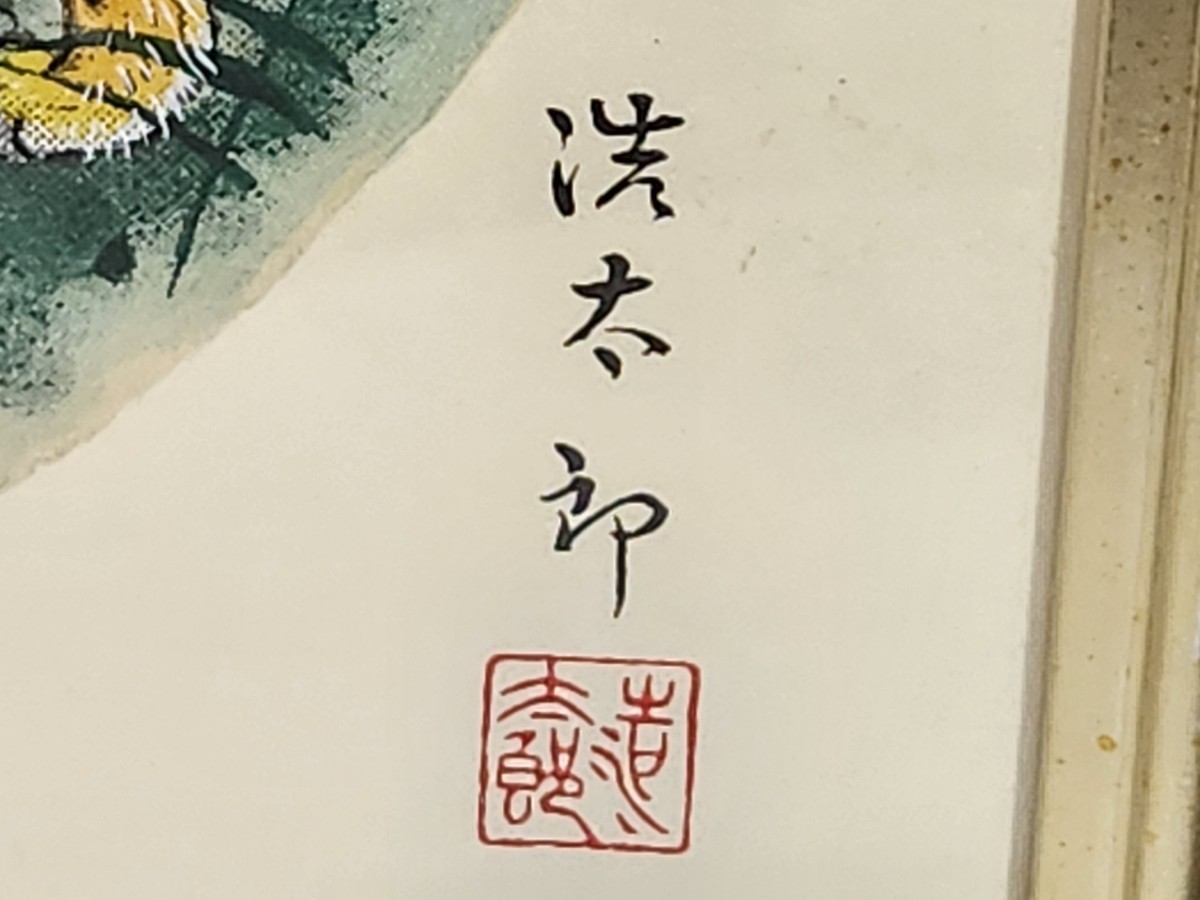 浩太郎
浩太郎